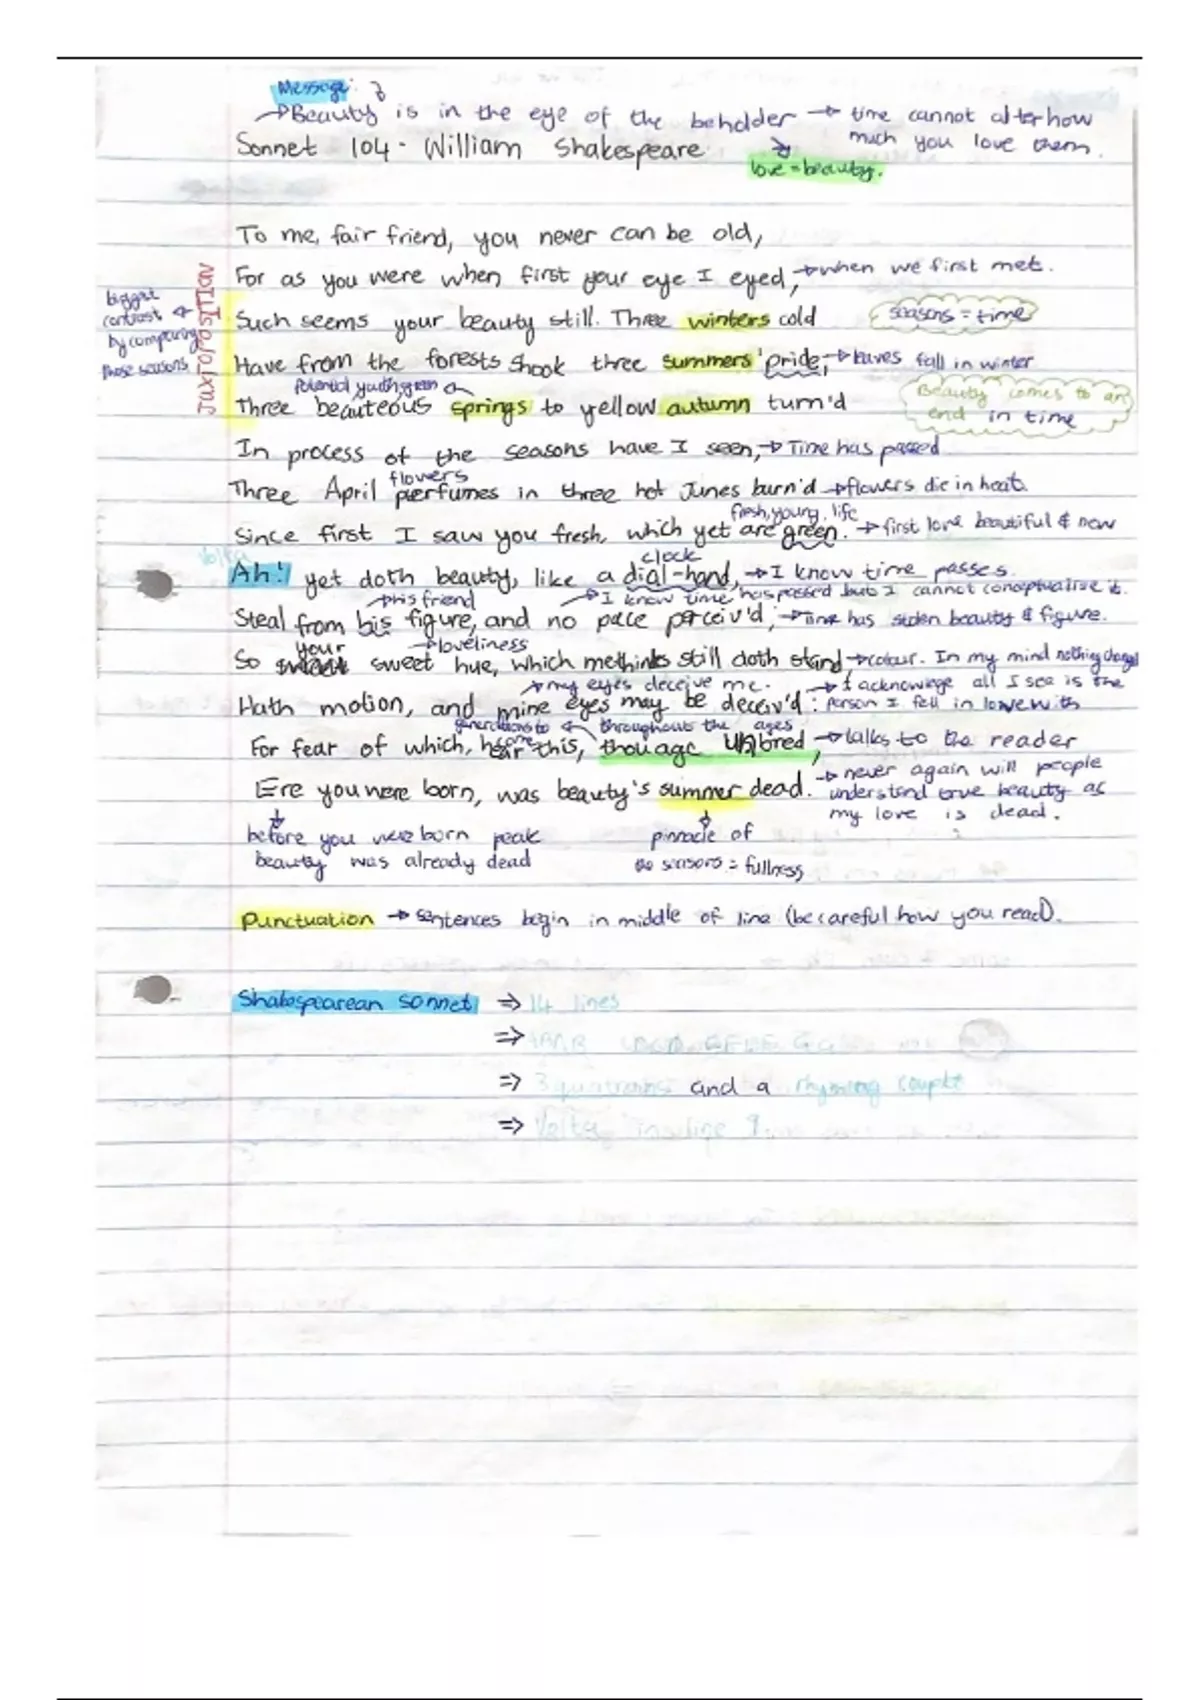 Message:
→Beauty is in the eye of the beholder → time cannot alter how
much you love them.
Sonnet 104 - William Shakespeare
love = beauty.
To me, fair friend, you never can be old,
For as you were when first your eye I eyed, → when we first met.
biggest
contrast
by comparing
those seasons
JAXTOPOSITION
Such seems your beauty still. Three winters cold
seasons = time
Have from the forests shook three summers' pride, → leaves fall in winter
Potential, youth, green
Three beauteous springs to yellow autumn turn'd
Beauty comes to an
end in time
In process of the seasons have I seen, → Time has passed
flowers
Three April perfumes in three hot Junes burn'd → flowers die in heat.
fresh, young, life
Since first I saw you fresh, which yet are green. → first love beautiful & new
Volta
clock
Ah! yet doth beauty, like a dial-hand, → I know time passes.
→ his friend
→ I know time has passed but I cannot conceptualise it.
Steal from his figure, and no pace perceiv'd; → Time has stolen beauty & figure.
your → loveliness
So sweet hue, which methinks still doth stand, → colour. In my mind nothing changed
→ my eyes deceive me. → I acknowlege all I see is the
Hath motion, and mine eyes may be deceiv'd: person I fell in love with
generations to come ← throughout the ages
For fear of which, hear this, thou age unbred, → talks to the reader
Ere you were born, was beauty's summer dead. → never again will people
understand true beauty as
my love is dead.
before you were born peak
beauty was already dead
pinnacle of
the seasons = fullness
Punctuation → sentences begin in middle of line (be careful how you read).
Shakespearean sonnet ⇒ 14 lines
⇒ EFEF GG
⇒ 3 quatrains and a rhyming couplet
⇒ Volta in line 9.